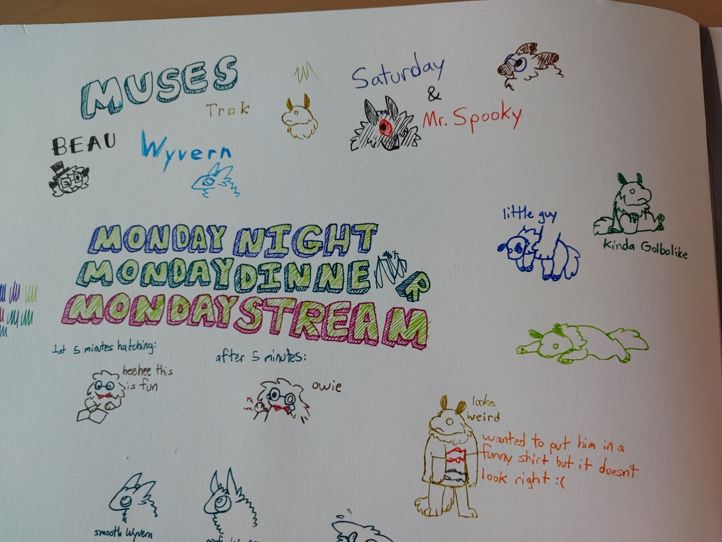 MUSES
Trok
Saturday
&
Mr. Spooky
BEAU
Wyvern
little guy
Kinda Golbolike
MONDAY NIGHT
MONDAY DINNER
MONDAY STREAM
1st 5 minutes hatching:
heehee this
is fun
after 5 minutes:
owie
looks
weird
wanted to put him in a
funny shirt but it doesn't
look right :(
smooth Wyvern